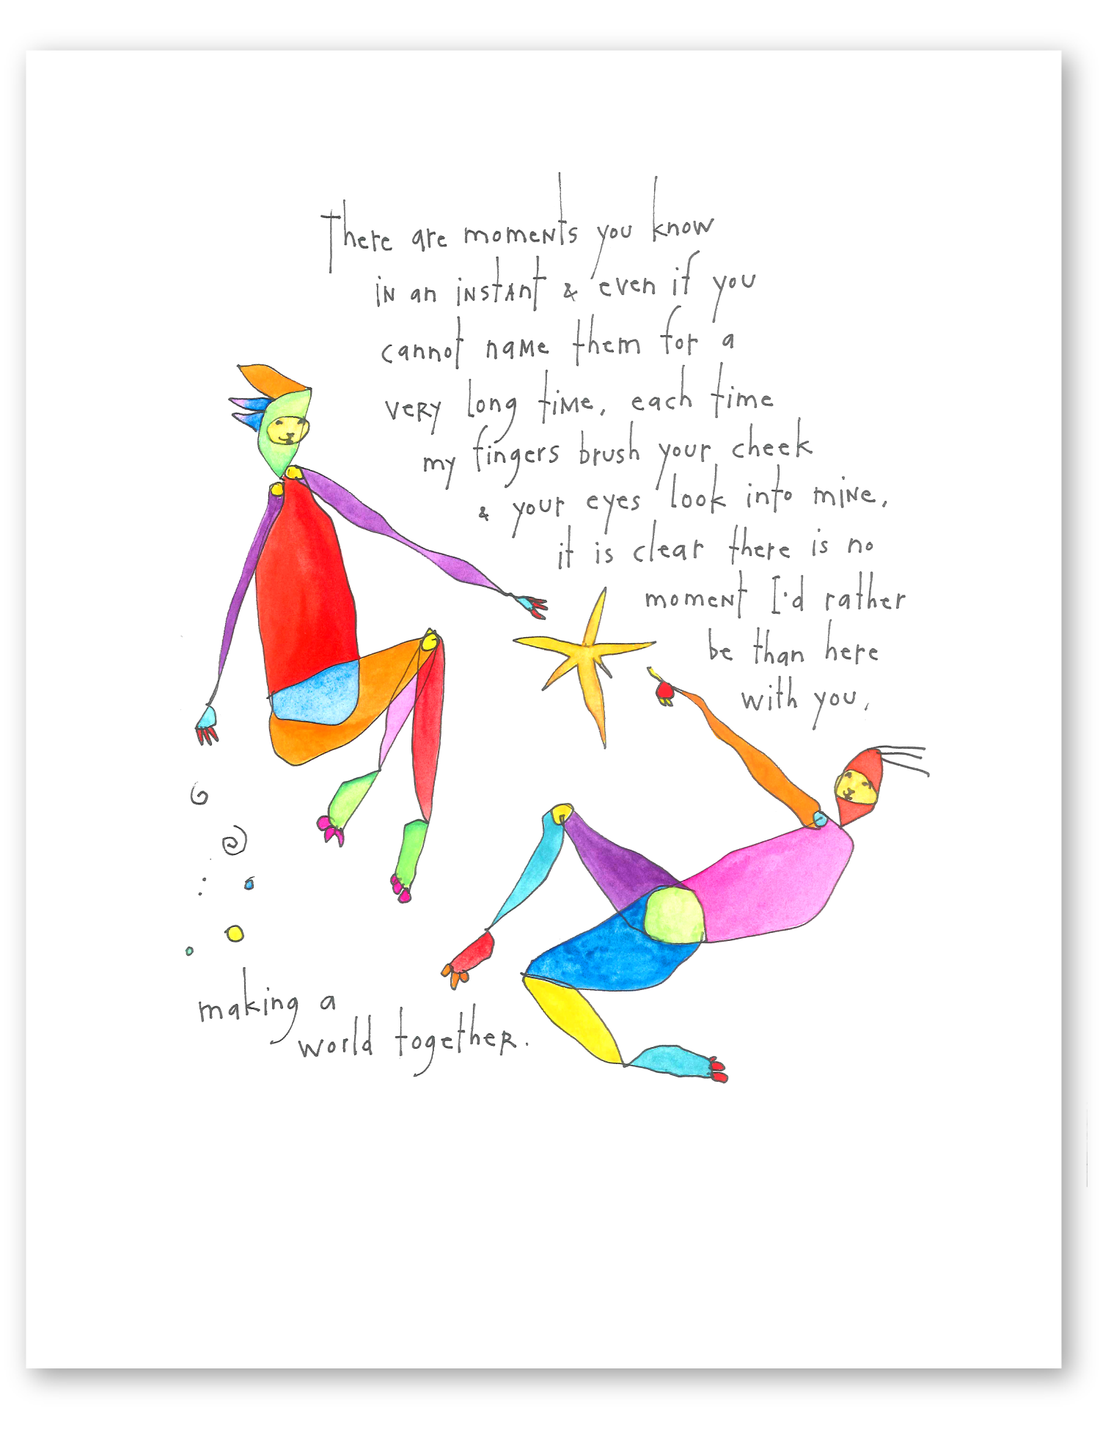 There are moments you know
in an instant & even if you
cannot name them for a
very long time, each time
my fingers brush your cheek
& your eyes look into mine,
it is clear there is no
moment I'd rather
be than here
with you,
making a
world together.